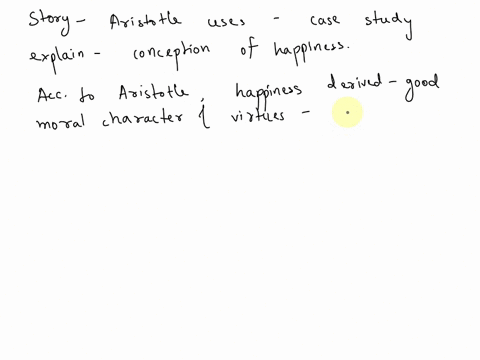 Story - Aristotle uses - case study
explain - conception of happiness.
Acc. to Aristotle, happiness derived - good
moral character & virtues -